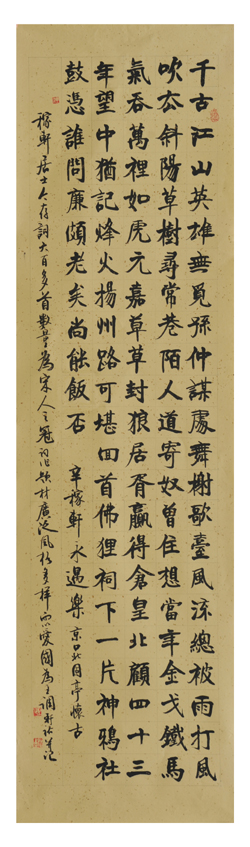 千古江山英雄無覓孫仲謀處舞榭歌臺風流總被雨打風
吹去斜陽草樹尋常巷陌人道寄奴曾住想當年金戈鐵馬
氣吞萬裡如虎元嘉草草封狼居胥贏得倉皇北顧四十三
年望中猶記烽火揚州路可堪回首佛狸祠下一片神鴉社
鼓憑誰問廉頗老矣尚能飯否 辛稼軒永遇樂京口北固亭懷古
稼軒居士今存詞六百多首數量為宋人之冠詞作題材廣泛風格多樣而以愛國為主調